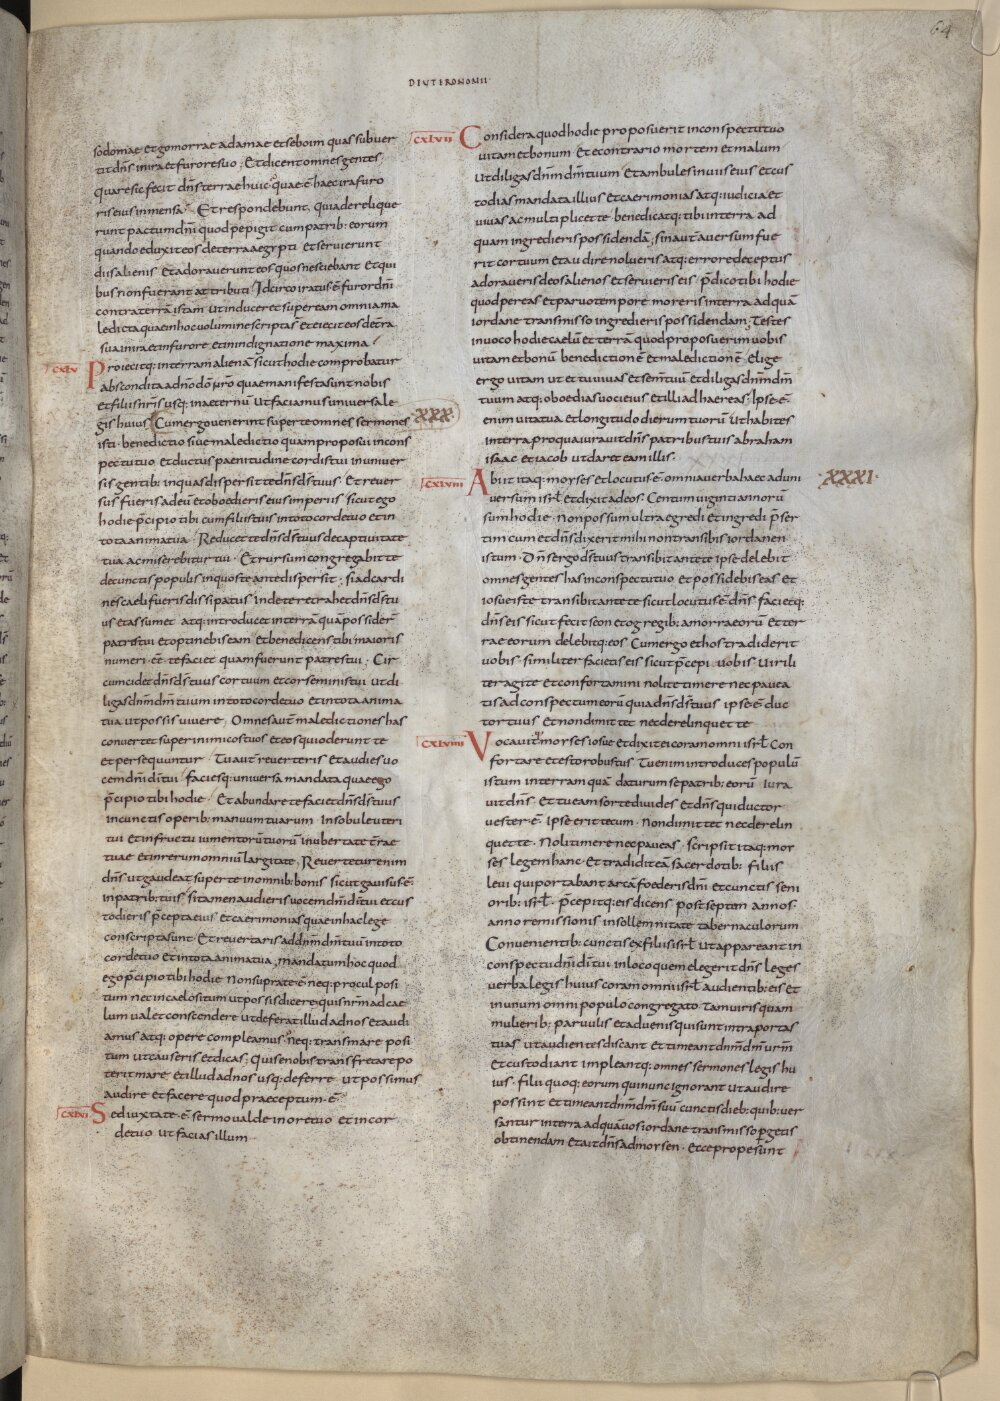 64
DEUTERONOMII
sodomae et gomorrae adamae et seboim quas subuer
tit dn̄s in ira et furore suo; Et dicent omnes gentes
quare sic fecit dn̄s terrae huic; quae ē haec ira furo
ris eius inmensa; Et respondebunt, quia derelique
runt pactum dn̄i quod pepigit cum patrib: eorum
quando eduxit eos de terra aegypti et seruierunt
diis alienis Et adorauerunt eos quos nesciebant Et qui
bus non fuerant attributi Idcirco iratus ē furor dn̄i
contra terrā istam ut induceret super eam omnia ma
ledicta quae in hoc uolumine scripta s̄ et eiecit eos de t̄ra
sua in ira et in furore et in indignatione maxima;
CXLV Proiecitq: in terram alienā sicut hodie comprobatur
abscondita a dn̄o dō n̄ro quae manifesta sunt nobis
et filiis n̄ris usq: in aeternū ut faciamus uniuersa le
gis huius Cum ergo uenerint super te omnes sermones XXX
isti benedictio siue maledictio quam proposui in cons
pectu tuo et ductus paenitudine cordis tui in uniuer
sis gentib: in quas dispersit te dn̄s d̄s tuus Et reuer
sus fueris ad eū et oboedieris eius imperiis sicut ego
hodie p̄cipio tibi cum filiis tuis in toto corde tuo et in
tota anima tua Reducet te dn̄s d̄s tuus de captiuitate
tua ac miserebitur tui Et rursum congregabit te
de cunctis populis in quos te ante dispersit; si ad cardi
nes caeli fueris dissipatus Inde te retrahet dn̄s d̄s tu
us et assumet atq: introducet in terrā quā possider̄
patres tui et optinebis eam Et benedicens tibi maioris
numeri ēē te faciet quam fuerunt patres tui; Cir
cumcidet dn̄s d̄s tuus cor tuum et cor seminis tui ut di
ligas dn̄m dm̄ tuum in toto corde tuo et in tota anima
tua ut possis uiuere; Omnes aut̄ maledictiones has
conuertet super inimicos tuos et eos qui oderunt te
et persequuntur Tu aut̄ reuerteris et audies uo
cem dn̄i dī tui faciesq: uniuersa mandata quae ego
p̄cipio tibi hodie Et abundare te faciet dn̄s d̄s tuus
in cunctis operib: manuum tuarum In sobule uteri
tui et in fructu iumentorū tuorū in ubertate t̄rae
tuae et in rerum omniū largitate Reuertetur enim
dn̄s ut gaudeat super te in omnib: bonis sicut gauisus ē
in patrib: tuis si tamen audieris uocem dn̄i dī tui et cus
todieris p̄cepta eius et caerimonias quae in hac lege
conscripta sunt Et reuertaris ad dn̄m dm̄ tuū in toto
corde tuo et in tota anima tua mandatum hoc quod
ego p̄cipio tibi hodie Non supra te ē neq: procul posi
tum nec in caelo situm ut possis dicere quis n̄rm ad cae
lum ualet conscendere ut deferat illud ad nos et audi
amus atq: opere compleamus neq: trans mare posi
tum ut causeris et dicas Quis e nobis transfretare po
terit mare et illud ad nos usq: deferre ut possimus
audire et facere quod praeceptum ē
CXLVI Sed iuxta te ē sermo ualde in ore tuo et in cor
de tuo ut facias illum
CXLVII Considera quod hodie proposuerit in conspectu tuo
uitam et bonum Et e contrario mortem et malum
Ut diligas dn̄m dm̄ tuum Et ambules in uiis eius et cus
todias mandata illius et caerimonias atq: iudicia et
uiuas ac multiplicet te benedicatq: tibi in terra ad
quam ingredieris possidendā; sin aut̄ auersum fue
rit cor tuum et audire nolueris atq: errore deceptus
adoraueris deos alienos et seruieris eis p̄dico tibi hodie
quod pereas et paruo tempore moreris in terra ad quā
iordane transmisso ingredieris possidendam; Testes
inuoco hodie caelū et terrā quod proposuerim uobis
uitam et bonū benedictionē et maledictionē Elige
ergo uitam ut et tu uiuas et sem̄ tuū Et diligas dn̄m dm̄
tuum atq: oboedias uoci eius et illi adhaereas; Ipse ē
enim uita tua et longitudo dierum tuorū Ut habites
in terra pro qua iurauit dn̄s patribus tuis abraham
isaac et iacob ut daret eam illis.
CXLVIII Abiit itaq: moyses et locutus ē omnia uerba haec ad uni XXXI
uersum isr̄l et dixit ad eos Centum uiginti annorū
sum hodie Non possum ultra egredi et ingredi p̄ser
tim cum et dn̄s dixerit mihi non transibis iordanen
istum Dn̄s ergo d̄s tuus transibit ante te Ipse delebit
omnes gentes has in conspectu tuo et possidebis eas Et
iosue iste transibit ante te sicut locutus ē dn̄s facietq:
dn̄s eis sicut fecit seon et og regib: amorraeorū Et ter
rae eorum delebitq: eos Cum ergo et hos tradiderit
uobis similiter facietis eis sicut p̄cepi uobis Uirili
ter agite et confortamini nolite timere nec pauea
tis ad conspectum eorū quia dn̄s d̄s tuus ipse ē duc
tor tuus Et non dimittet nec derelinquet te
CXLVIIII Uocauitq: moyses iosue et dixit ei coram omni isr̄l Con
fortare et esto robustus Tu enim introduces populū
istum in terram quā daturum se patrib: eorū iura
uit dn̄s Et tu eam sorte diuides Et dn̄s qui ductor
uester ē ipse erit tecum Non dimittet nec derelin
quet te Noli timere nec paueas scripsit itaq: moy
ses legem hanc Et tradidit eā sacerdotib: filiis
leui qui portabant arcā foederis dn̄i Et cunctis seni
orib: isr̄l p̄cepitq: eis dicens post septem annos
anno remissionis in sollemnitate tabernaculorum
Conuenientib: cunctis ex filiis isr̄l ut appareant in
conspectu dn̄i dī tui in loco quem elegerit dn̄s leges
uerba legis huius coram omni isr̄l audientib: eis et
in unum omni populo congregato Tam uiris quam
mulierib: paruulis et aduenis qui sunt intra portas
tuas ut audientes discant Et timeant dn̄m dm̄ ur̄m
Et custodiant impleantq: omnes sermones legis hu
ius filii quoq: eorum qui nunc ignorant ut audire
possint Et timeant dn̄m dm̄ suū cunctis dieb: quib: uer
santur in terra ad quā uos iordane transmisso pgetis
obtinendam et ait dn̄s ad moysen Ecce prope sunt